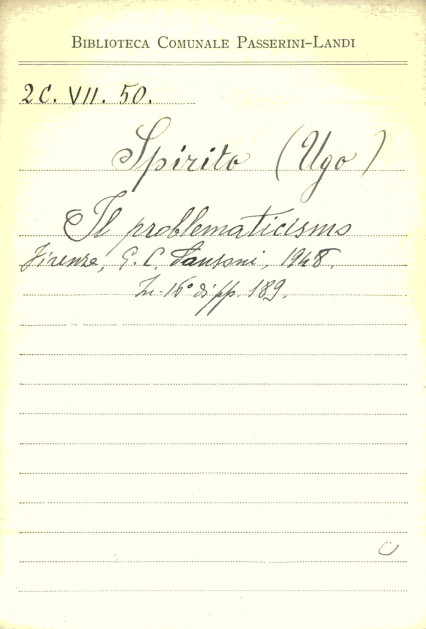 BIBLIOTECA COMUNALE PASSERINI-LANDI
2C. VII. 50.
Spirito (Ugo)
Il problematicismo
Firenze, G. C. Sansoni, 1948.
In-16° di pp. 189.